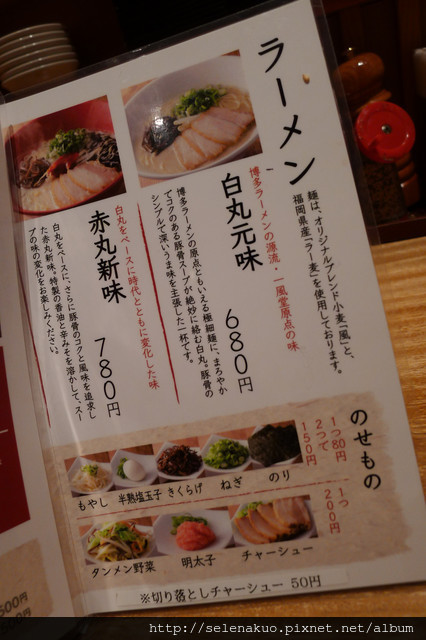 ラーメン
麺は、オリジナルブレンド小麦「風」と、
福岡県産「ラー麦」を使用しております。
博多ラーメンの源流・一風堂原点の味
白丸元味
680円
博多ラーメンの原点ともいえる極細麺に、まろやか
でコクのある豚骨スープが絶妙に絡む白丸。豚骨の
シンプルで深いうま味を主張した一杯です。
白丸をベースに時代とともに変化した味
赤丸新味
780円
白丸をベースに、さらに豚骨のコクと風味を追求し
た赤丸新味。特製の香油と辛みそを溶かして、スー
プの味の変化をお楽しみください。
のせもの
1つ80円
2つで
150円
もやし 半熟塩玉子 きくらげ ねぎ のり
1つ
200円
タンメン野菜 明太子 チャーシュー
※切り落としチャーシュー 50円
500円
http://selenakuo.pixnet.net/album